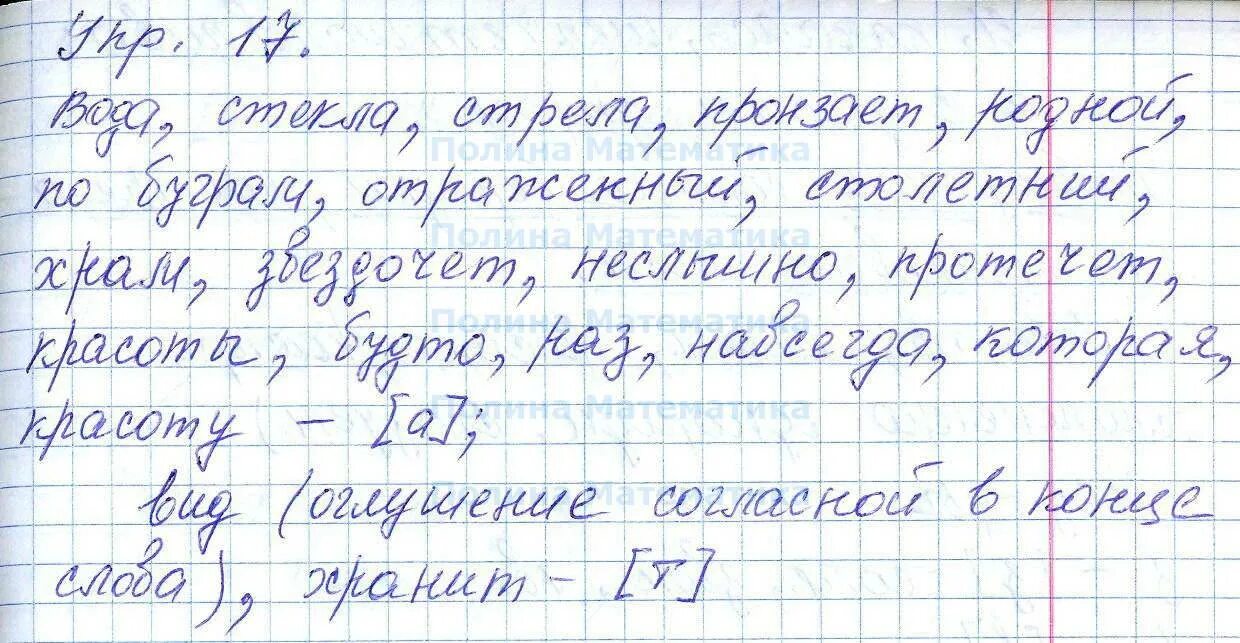 Упр. 17.
Вода, стекла, стрела, пронзает, родной,
Полина Математика
по буграм, отраженный, столетний,
Полина Математика
храм, звездочет, неслышно, протечет,
Полина Математика
красоты, будто, раз, навсегда, которая,
Полина Математика
красоту – [а];
Полина Математика
вид (оглушение согласной в конце
слова), хранит – [т]